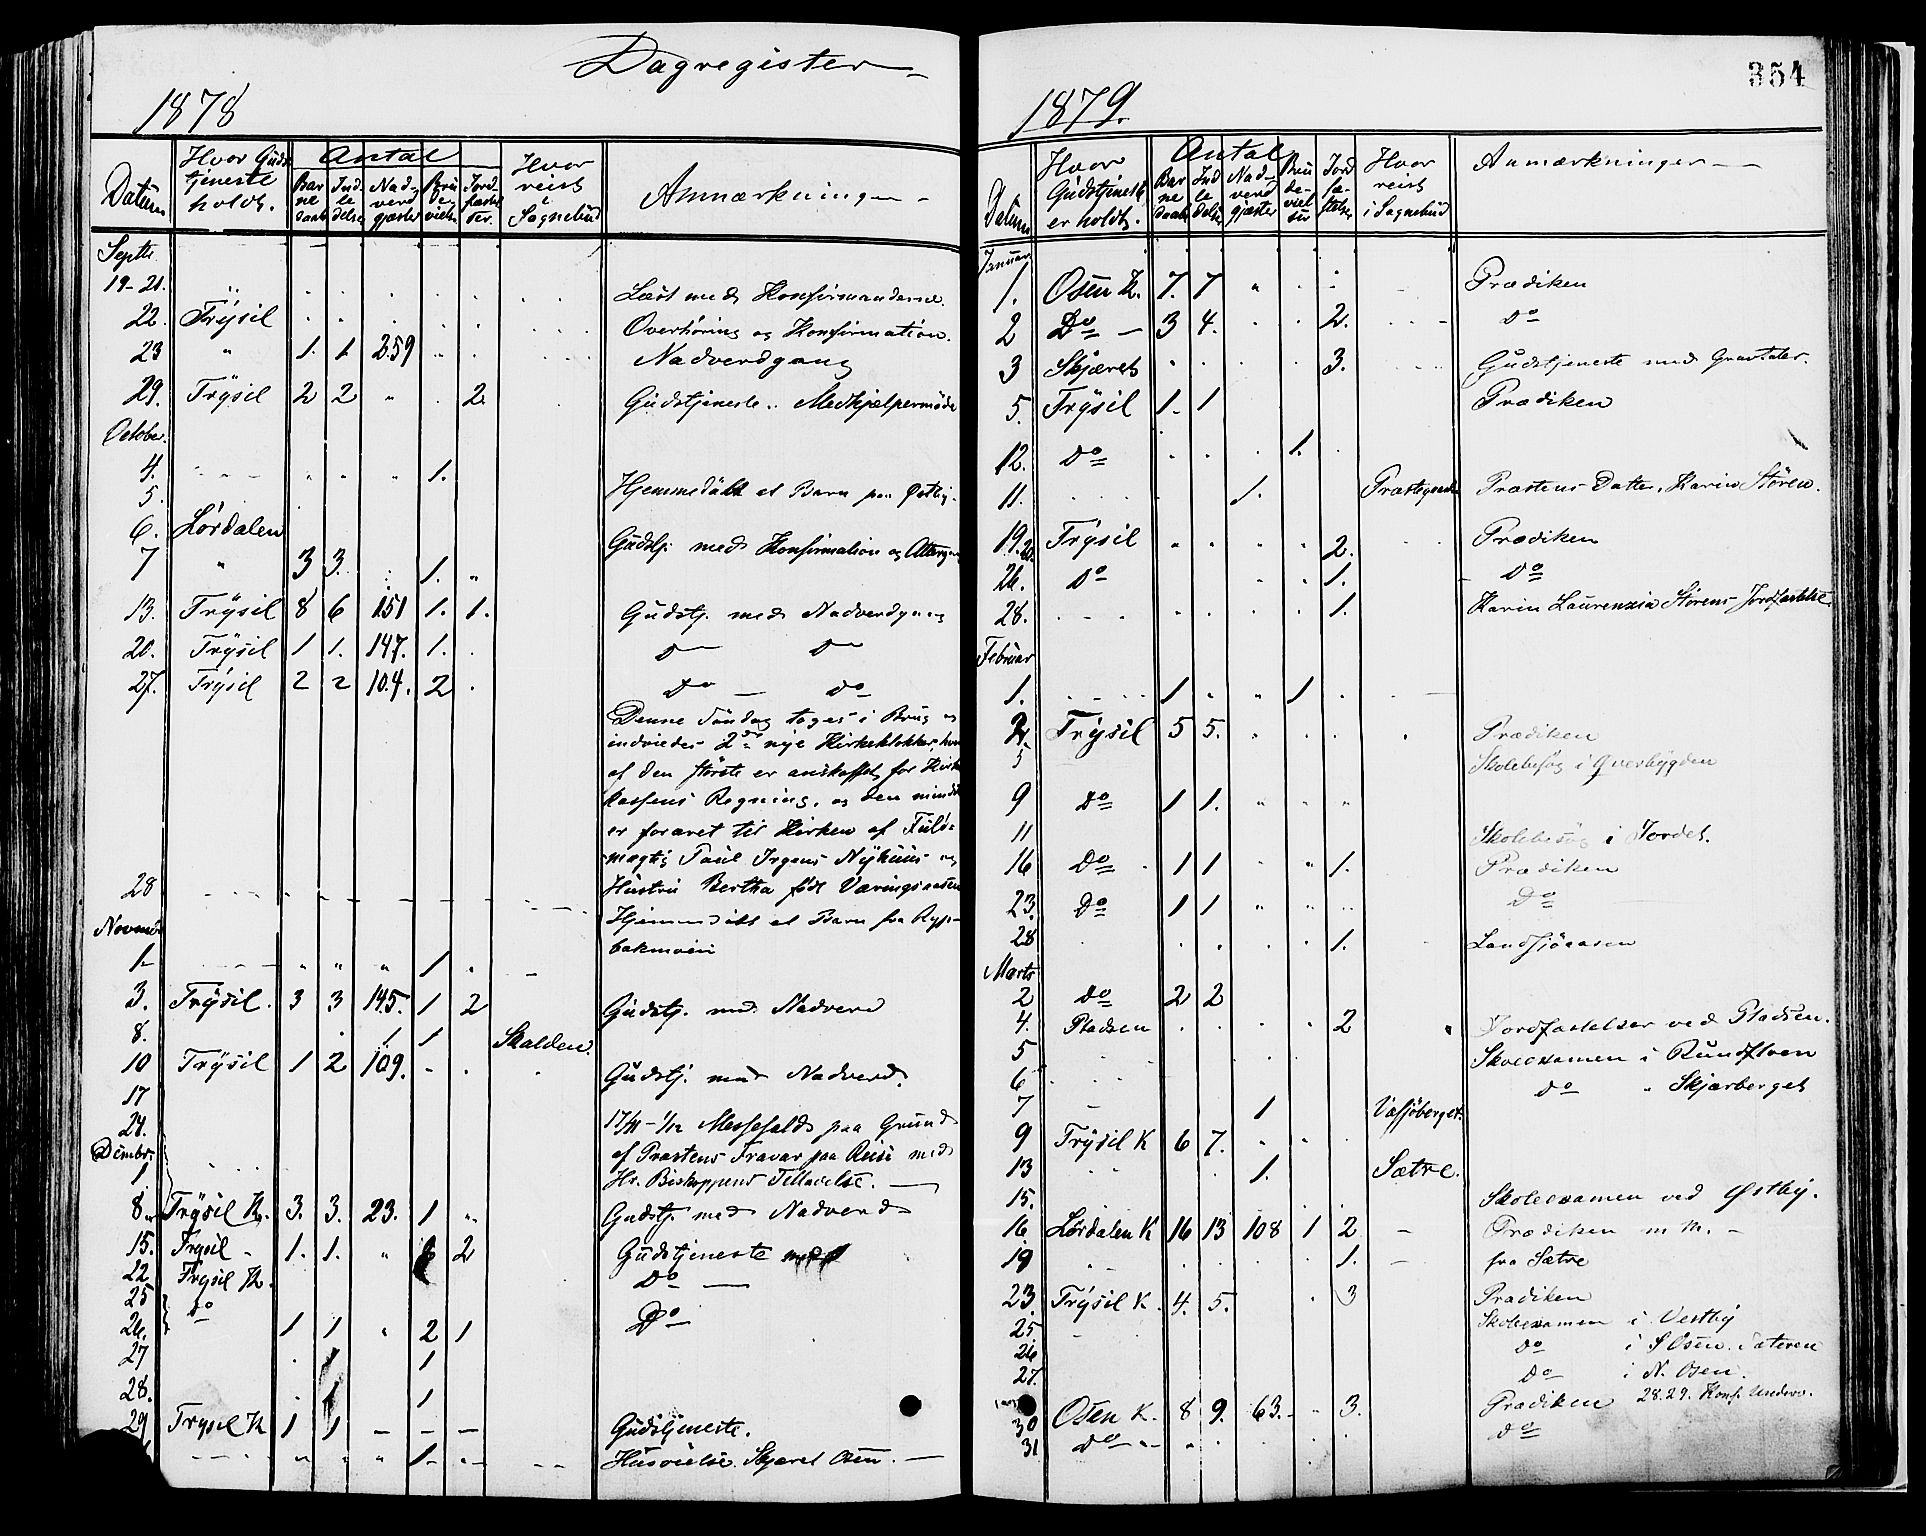 Dagregister
1878
Datum Hvor Guds tjeneste holdt. Antal Barnedaab Indledelse Nadverdgjæster Brudevielser Jordfæstelser. Hvor reist i Sognebud Anmærkninger
Septbr.
19-21. Læst med Konfirmanderne.
22. Trysil Overhøring og Konfirmation.
23 " 1. 1 259 Nadverdgang
29. Trysil 2 2 " . 2. Gudstjeneste .. Medhjælpermøde
October.
4. 1.
5. Hjemmedøbt et Barn paa Østby.
6. Lørdalen Gudstj. med Konfirmation og
7 " 3 3. 1. "
13. Trysil 8 6 151 1. 1. Gudstj. med Nadverdgang
20. Trysil 1 1. 147. 1. . Do Do
27. Trysil 2 2 104. 2 . Do — do
Denne Søndag toges i Brug og
indviedes 2de nye Kirkeklokker, hvor
af den største er anskaffet for Kirke
kassens Regning, og den mindste
er foræret til Kirken af Fuld-
mægtig Paul Irgens Nyhuus og
28 Hustru Bertha født Væringsaasen
Hjemmedøbt et Barn fra
Novembr
bakmoen
1. " " " 1 .
3. Trysil. 3 3 145. 1 2 Gudstj. med Nadverd
8. 1 1 Skalden.
10 Trysil 1 2 109. - . Gudstj. med Nadverd.
17
24. 17/11 - 1/12 Messefald paa Grund
Dcmbr. af Præstens Fravær paa Reise med
1 Hr. Biskoppens Tilladelse. —
8. Trysil K. 3. 3. 23. 1 " Gudstj. med Nadverd
15. Trysil - 1. 1. " 2 Gudstjeneste
22 Trysil K. Do —
25 Do Do
26. 1 1 " 2 1
27 . 1 1
28. . 1 1
29 Trysil K 1 1 - - - Gudstjeneste.
1- Husvielse. Skjæret Osen. —
354
1879.
Datum Hvor Gudstjeneste er holdt. Antal Barnedaab Indledelse Nadverdgjæster Brudevielser Jordfæstelser Hvor reist i Sognebud Anmærkninger —
Januar
1. Osen K. 7. 7 " Prædiken
2 Do — 3 4. . . 2. Do
3 Skjæret . . . . 3. Gudstjeneste med Gravtaler.
5. Trysil 1. 1 Prædiken
12. Do . . . 1.
11. 1. Præstegaarden Præstens Datter, Karin Støren.
19. Trysil " " " " 2. Prædiken
26. Do " " 1. Do
28. 1. Karin Laurenzia Størens Jordfæstelse.
Februar
1. 1 " " 1 .
2. Trysil 5 5. Prædiken
5 Skolebesøg i Qverbygden
9 Do 1 1. " " "
11 Skolebesøg i Jordet.
16 Do 1 1 " " 1. Prædiken
23. Do 1 1 " " Do
28 1. Landsjøaasen
Marts
2 Do 2 2
4. Pladsen 2 Jordfæstelser ved Pladsen.
5 Skoleexamen i Rundfloen
6 Do " Skjærberget
7 1 Vaßjøberget.
9 Trysil K 6 7. " "
13 1. Sætre.
15. Skoleexamen ved Østby.
16. Lørdalen K 16 13 108 1 2 - Prædiken m M. -
19 1. - fra Sætre
23. Trysil K. 4. 5. 3 Prædiken
25. Skoleexamen i Vestby
26 Do i S Osen. Sæteren
27. Do i N. Osen.
30 Osen K. 8 9. 63. - " 3. Prædiken 28.29. Konf. Underv.
31 Do Do